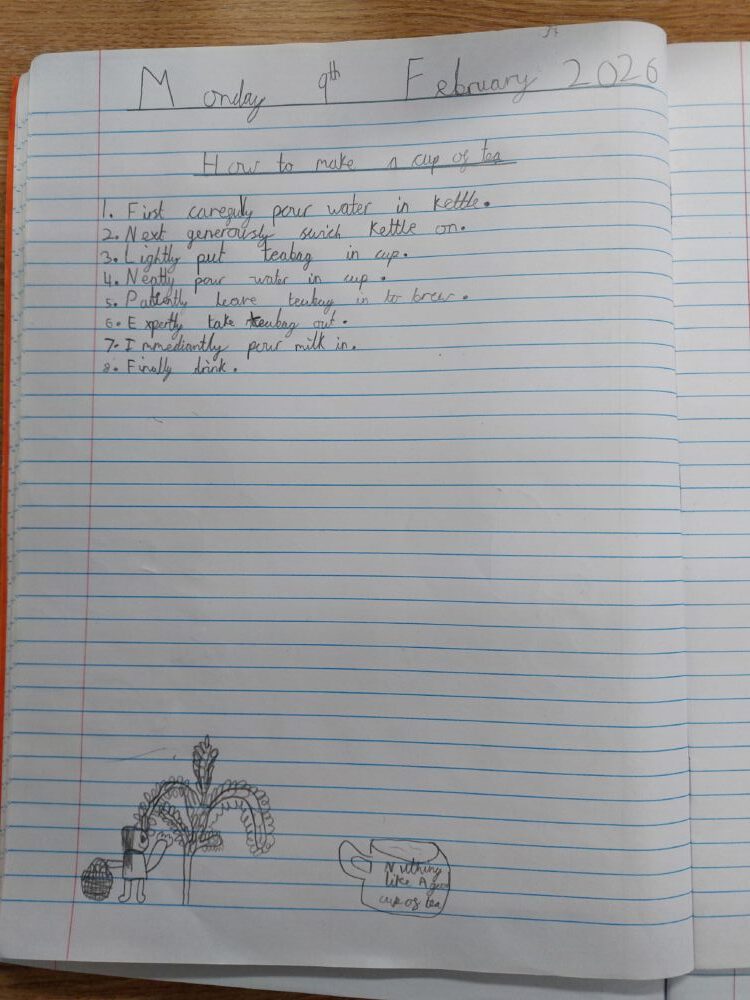 Monday 9th February 2026
How to make a cup of tea
1. First caregully pour water in kettle.
2. Next generously swich kettle on.
3. Lightly put teabag in cup.
4. Neatly pour water in cup.
5. Patiently leave teabag in to brew.
6. Expertly take teabag out.
7. Immediantly pour milk in.
8. Finally drink.
Nuthing
like A good
cup of tea